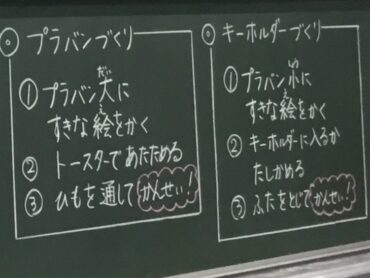 ◎ プラバンづくり
① プラバン大に
すきな絵をかく
② トースターであたためる
③ ひもを通して かんせい!
◎ キーホルダーづくり
① プラバン小に
すきな絵をかく
② キーホルダーに入るか
たしかめる
③ ふたをとじて かんせい!